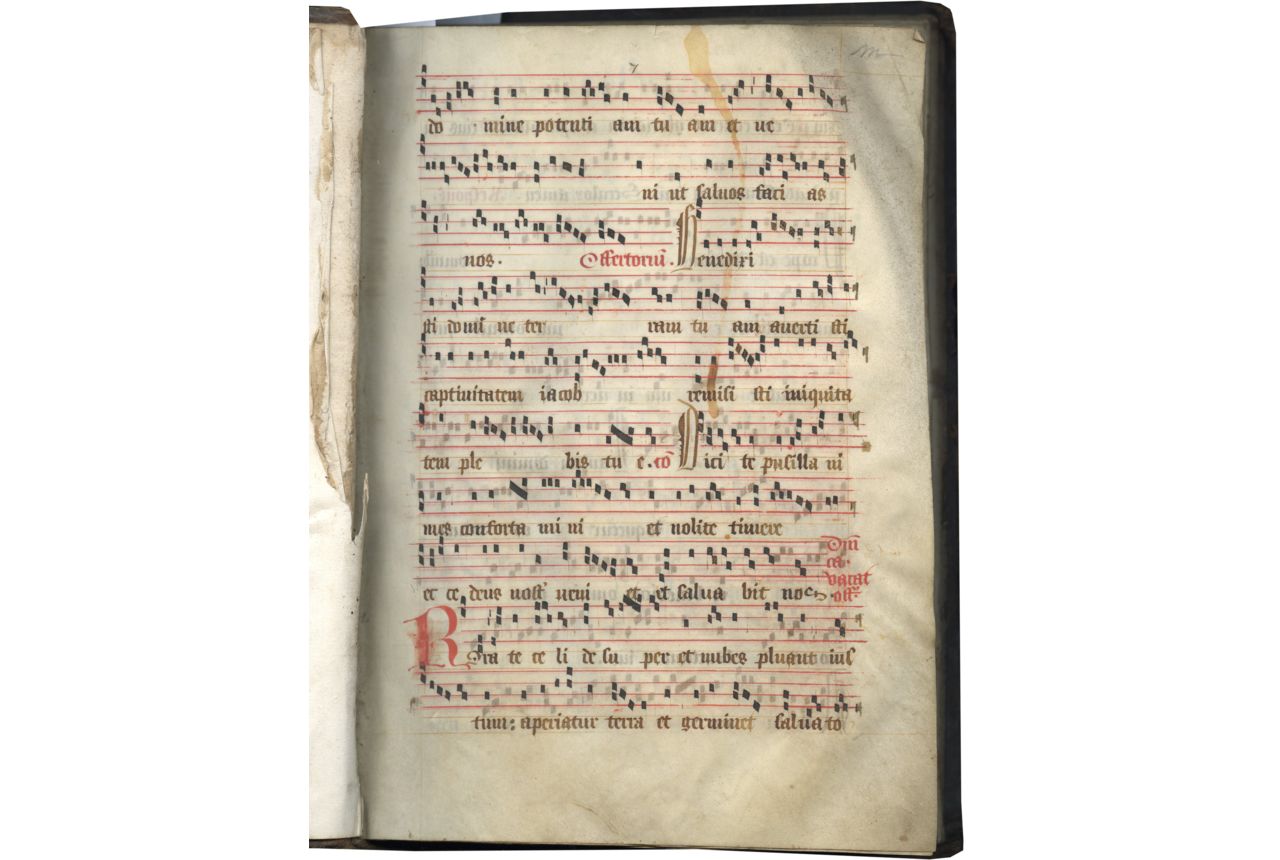 7
do mine potenti am tu am et ue
ni ut saluos faci as
nos. Offertoriū. Benedixi
sti domie ne ter ram tu am auerti sti
captiuitatem iacob remisi sti iniquita
tem ple bis tu e. cō Dici te pusilla ni
mes conforta mi ni et nolite timere
ec ce deus nost' ueni et et salua bit nos.
Dn̄i
ca.
vacat
off.
Rora te ce li de su per et nubes pluant ius
tum: aperiatur terra et germinet salua to